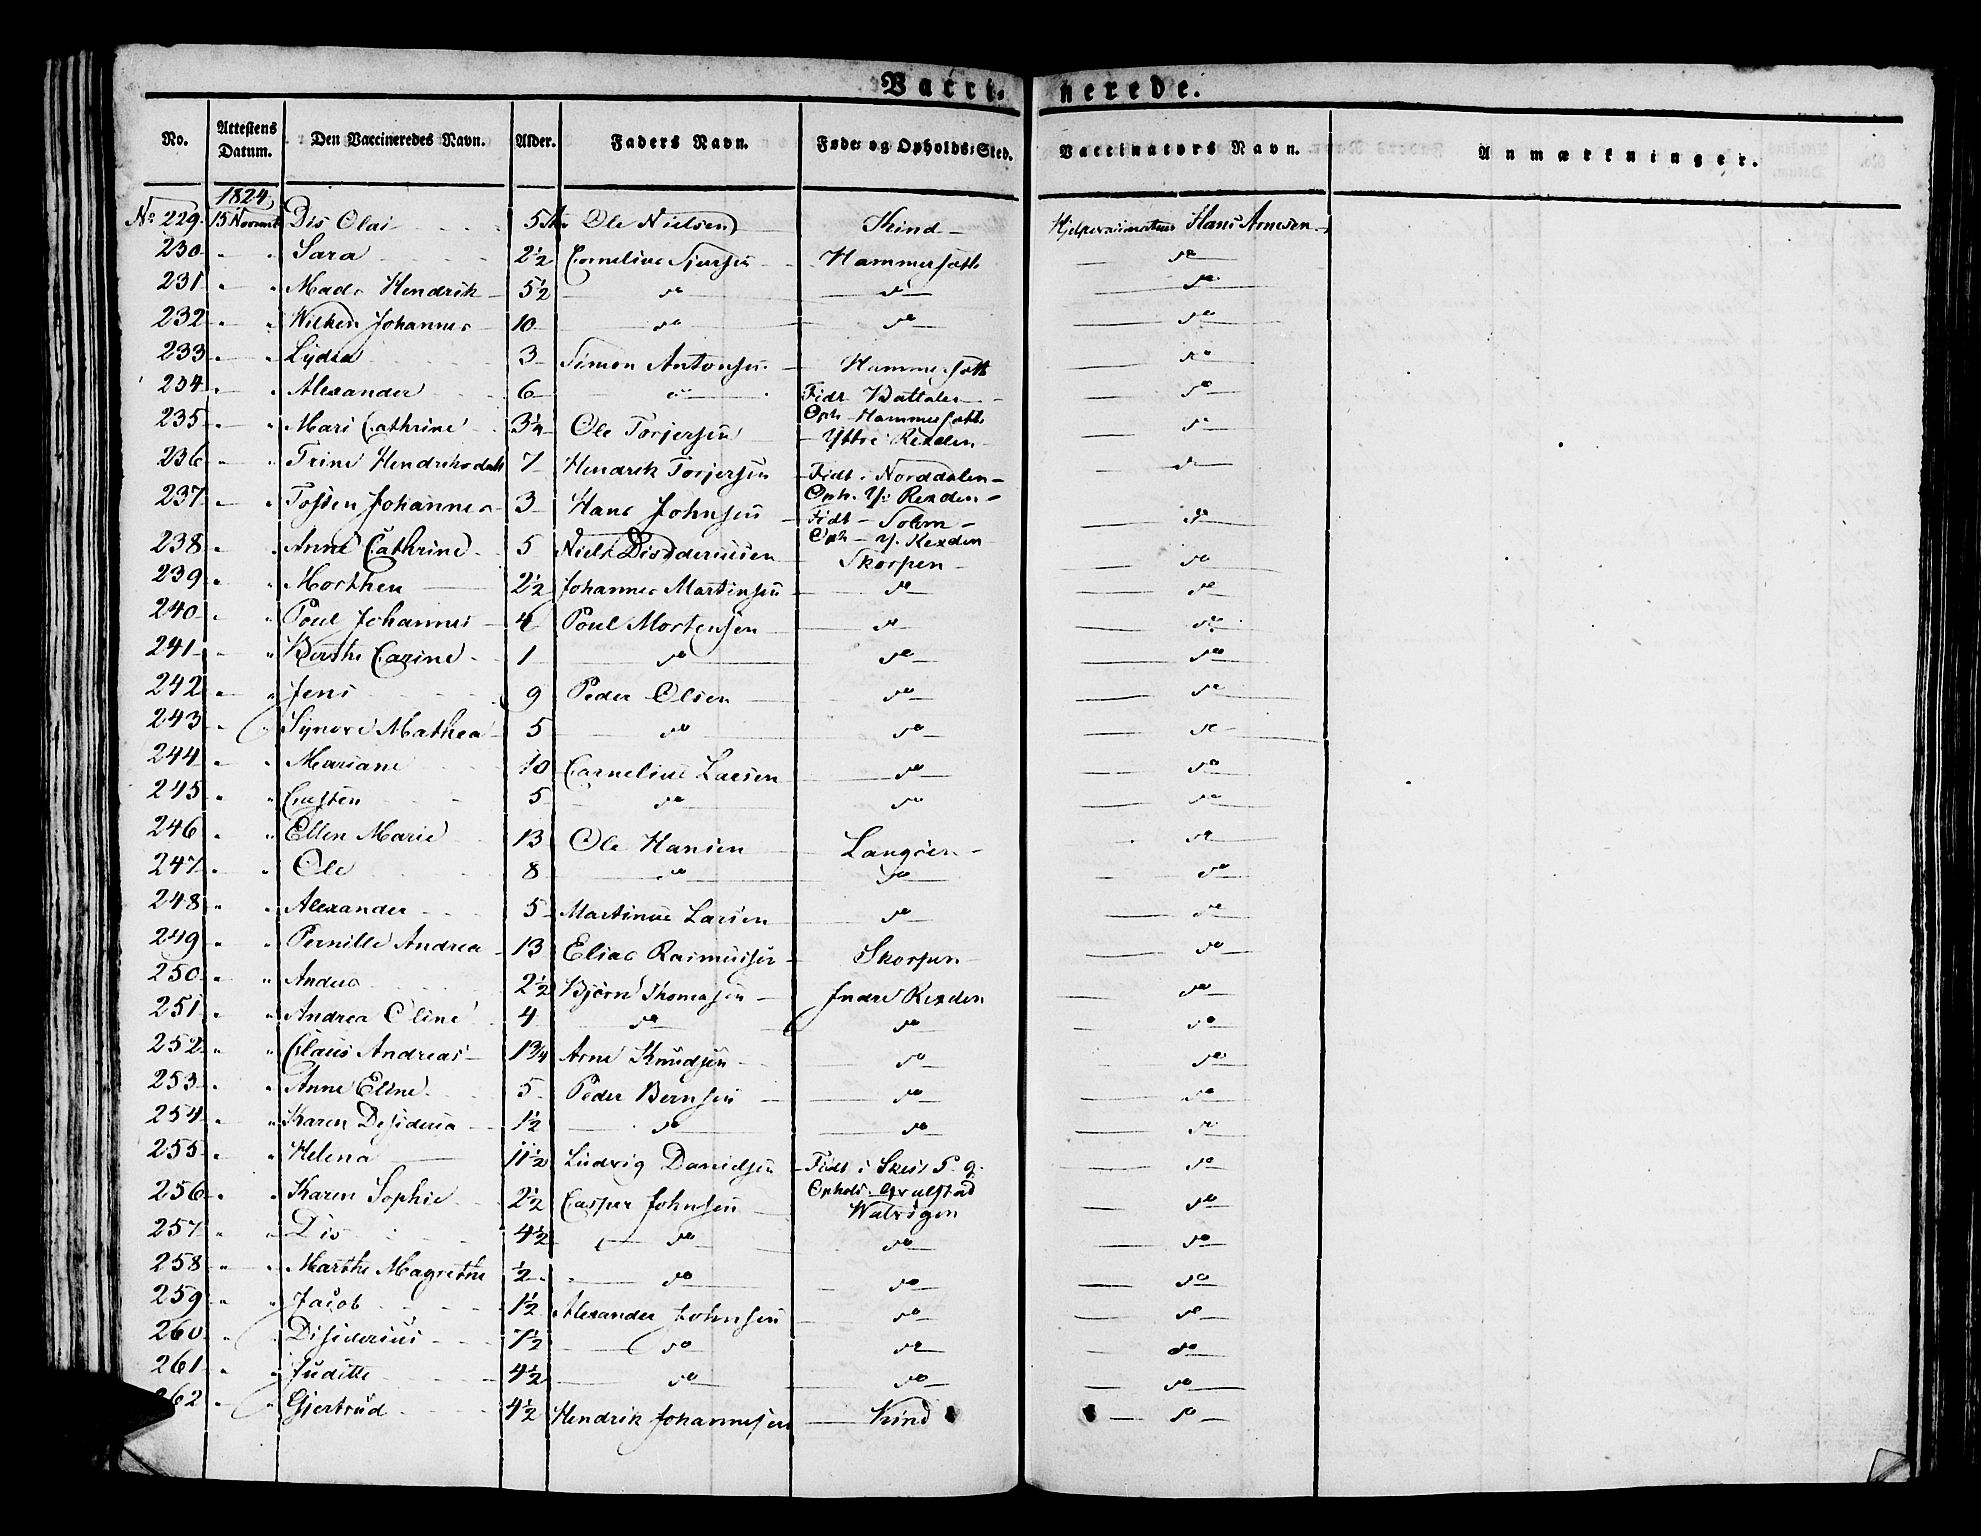 Vacci- nerede.
No. Attestens Datum. Den Vaccineredes Navn. Alder. Faders Navn. Føde- og Opholds-Sted. Vaccinators Navn. Anmærkninger.
1824
No 229. 15 Novemb Dis Olai 5 Ole Nielsen Kind Hans Arnesen
230 " Sara 2½ Cornelius Hammersæth do
231 " Mads Hendrik 5½ do do do
232 " Wilken Johannes 10 do do do
233 " Lydia 3 Simon Antonsen Hammersæth do
234 " Alexander 6 do Födt Oph. Hammersæth do
235 " Mari Cathrine 3¼ Ole Torjersen Yttre Rexden do
236 " Trine Hendriksdatt 7 Hendrik Torjersen Födt i Norddalen Oph. Y. Rexden do
237 " Tosten Johannes 3 Hans Johnsen Födt Oph. Y. Rexden do
238 " Anne Cathrine 5 Niels Skorpen do
239 " Morthen 2½ Johannes Martinsen do do
240 " Poul Johannes 4 Poul Mortensen do do
241 " Berthe Carine 1 do do do
242 " Jens 9 Peder Olsen do do
243 " Synove Mathea 5 do do do
244 " Mariane 10 Cornelius Larsen do do
245 " Casten 5 do do do
246 " Ellen Marie 13 Ole Hansen Langöen do
247 " Ole 8 do do do
248 " Alexander 5 Martinus Larsen do do
249 " Pernille Andrea 13 Elias Rasmussen Skorpen do
250 " Anders 2½ Björn Thomasen Indre Rexden do
251 " Andrea Oline 4 do do do
252 " Claus Andreas 1¾ Arne Knudsen do do
253 " Anne Eline 5 Peder Bernsen do do
254 " Karen Desideria 1½ do do do
255 " Helena 11½ Ludvig Danielsen Födt i P. g. Ophold. do
256 " Karen Sophie 2½ Casper Johnsen Watvigen do
257 " Dis 4½ do do do
258 " Marthe Magrethe ½ do do do
259 " Jacob 1½ Alexander Johnsen do do
260 " Disiderius 7½ do do do
261 " Juditte 4½ do do do
262 " Gjertrud 4½ Hendrik Johannesen Kind do